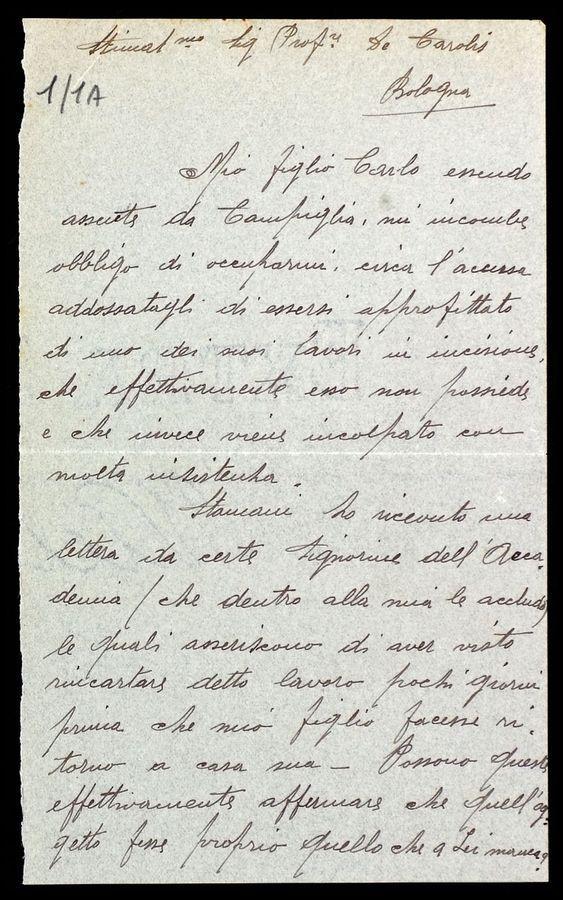 Stimat mo Sig Profr De Carolis
1/1A
Bologna
Mio figlio Carlo essendo
assente da Campiglia, mi incombe
obbligo di occuparmi, circa l'accusa
addossatagli di essersi approfittato
di uno dei suoi lavori in incisione,
che effettivamente esso non possiede
e che invece viene incolpato con
molta insistenza.
Stamani ho ricevuto una
lettera da certe Signorine dell'Acca
demia (che dentro alla mia le accludo)
le quali asseriscono di aver visto
rincartare detto lavoro pochi giorni
prima che mio figlio facesse ri-
torno a casa sua - Possono queste
effettivamente affermare che quell'og-
getto fosse proprio quello che a Lei manca?